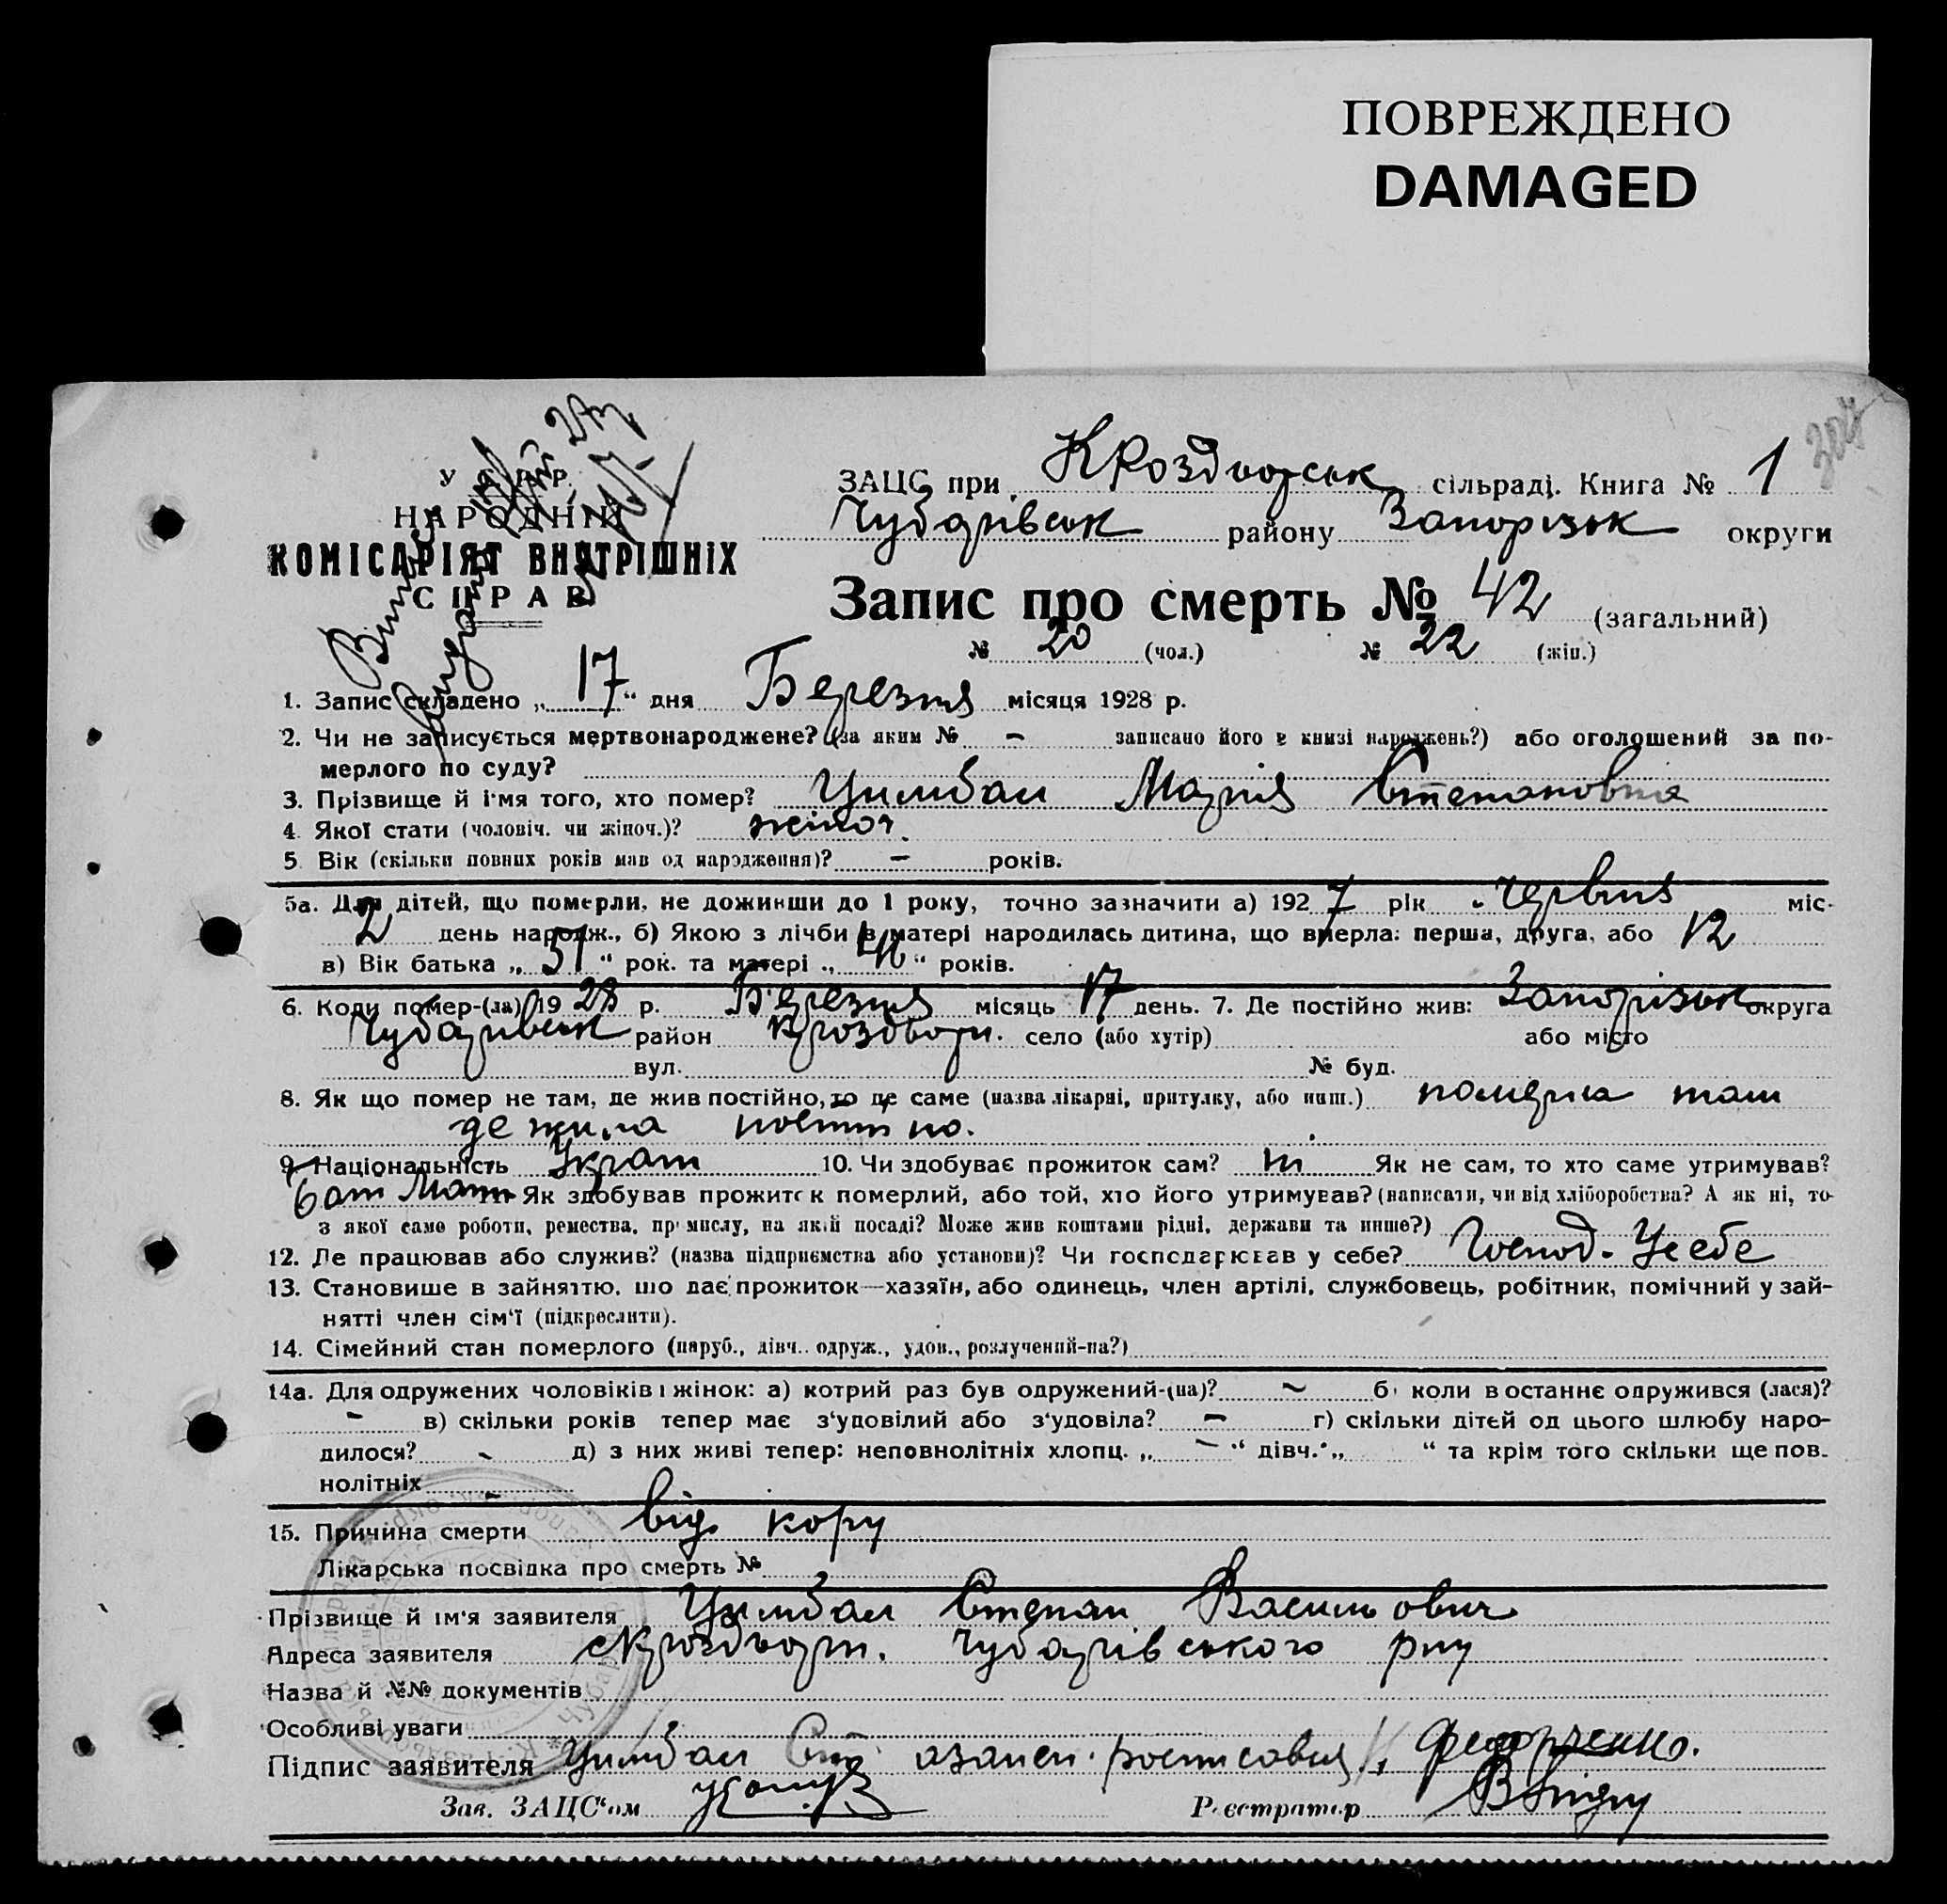 ПОВРЕЖДЕНО
DAMAGED
304
У.С.Р.Р.
НАРОДНІЙ
КОМІСАРІЯТ ВНУТРІШНІХ
СПРАВ
ЗАЦС при Кроздворськ сільраді. Книга № 1
Чубарівськ району Запорізьк округи
Запис про смерть № 42 (загальний)
№ 20 (чол.) № 22 (жін.)
1. Запис складено „ 17 “ дня Березня місяця 1928 р.
2. Чи не записується мертвонароджене? (за яким № – записано його в книзі народжень?) або оголошений за по-
мерлого по суду?
3. Прізвище й ім'я того, хто помер? Цимбал Марія Степановна
4. Якої стати (чоловіч. чи жіноч.)? жіноч.
5. Вік (скільки повних років мав од народження)? – років.
5а. Для дітей, що померли, не доживши до 1 року, точно зазначити а) 1927 рік Червня міс.
2 день народж., б) Якою з лічби в матері народилась дитина, що вмерла: перша, друга, або 12
в) Вік батька „ 51 “ рок. та матері „ 46 “ років.
6. Коли помер-(ла) 1928 р. Березня місяць 17 день. 7. Де постійно жив: Запорізьк округа
Чубарівськ район Кроздвори. село (або хутір) або місто
вул. № буд.
8. Як що помер не там, де жив постійно, то де саме (назва лікарні, притулку, або инш.) померла там
де жила постійно.
9. Національність Україн 10. Чи здобуває прожиток сам? ні Як не сам, то хто саме утримував?
бат Мати Як здобував прожиток померлий, або той, хто його утримував? (написати, чи від хліборобства? А як ні, то
з якої саме роботи, ремества, промислу, на якій посаді? Може жив коштами рідні, держави та инше?)
12. Де працював або служив? (назва підприємства або установи)? Чи господарював у себе? Господ. У себе
13. Становище в зайняттю, що дає прожиток—хазяїн, або одинець, член артілі, службовець, робітник, помічний у зай-
нятті член сім'ї (підкреслити).
14. Сімейний стан померлого (паруб., дівч., одруж., удов., розлучений-на?)
14а. Для одружених чоловіків і жінок: а) котрий раз був одружений-(на)? – б) коли в останнє одружився (лася)?
– в) скільки років тепер має з'удовілий або з'удовіла? – г) скільки дітей од цього шлюбу наро-
дилося? – д) з них живі тепер: неповнолітніх хлопц. „ – “ дівч. „ “ та крім того скільки ще пов-
нолітніх –
15. Причина смерти від кору
Лікарська посвідка про смерть №
Прізвище й ім'я заявителя Цимбал Степан Васильович
Адреса заявителя с Кроздвори. Чубарівського рну
Назва й №№ документів
Особливі уваги
Підпис заявителя Цимбал Ст Федорченко.
Зав. ЗАЦС'ом Реєстратор